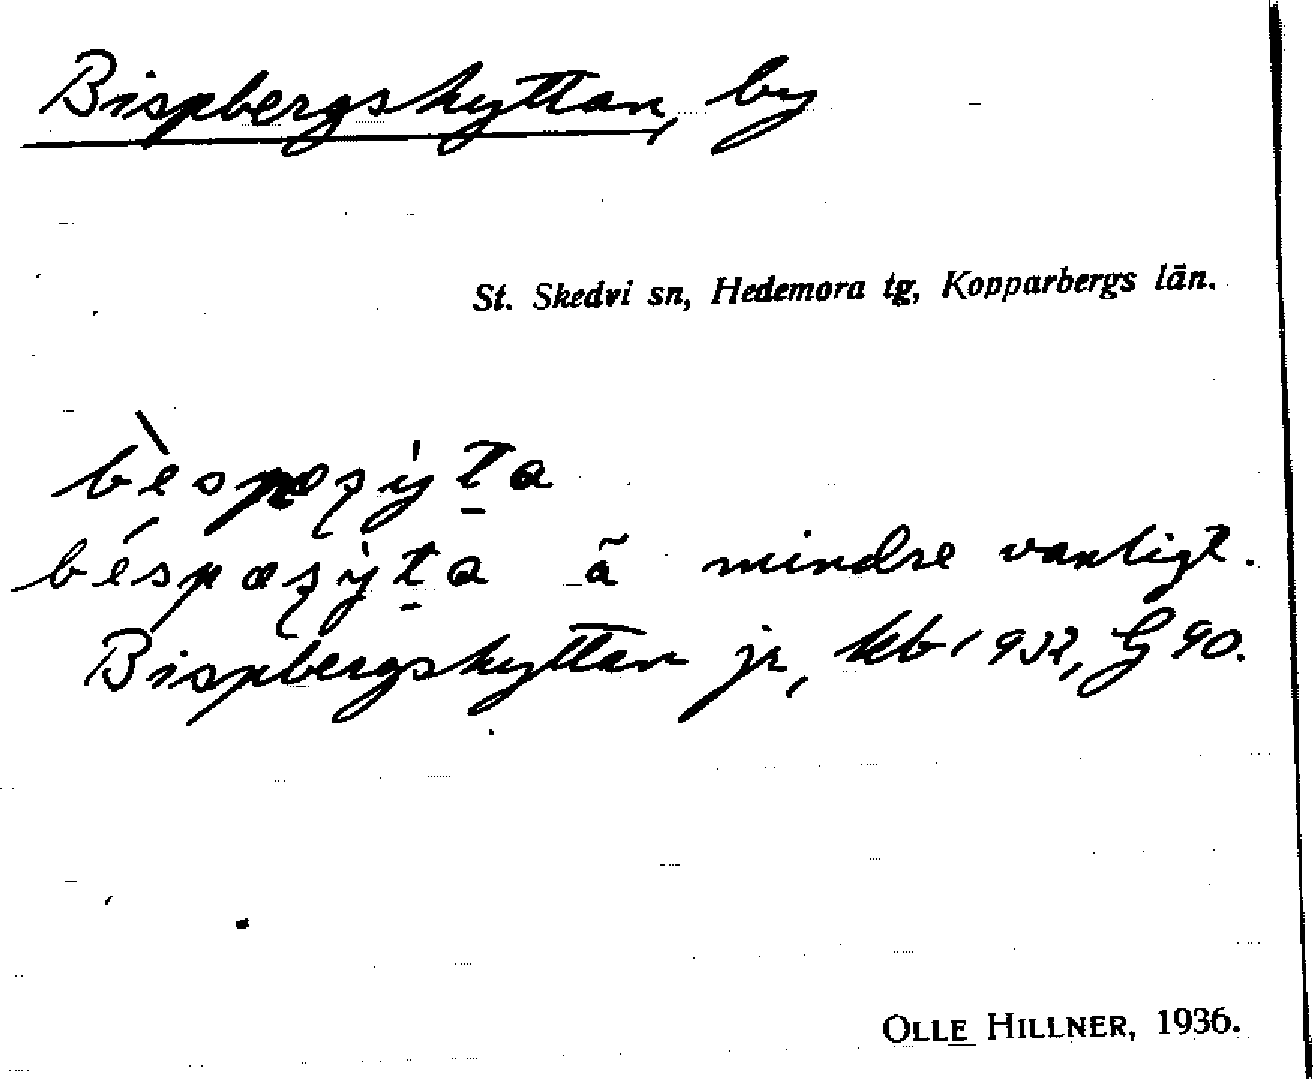 Bispbergshyttan, by
St. Skedvi sn, Hedemora tg, Kopparbergs län.
ä mindre vanligt.
Bispbergshyttan jr, kb 1932, G 90.
OLLE HILLNER, 1936.